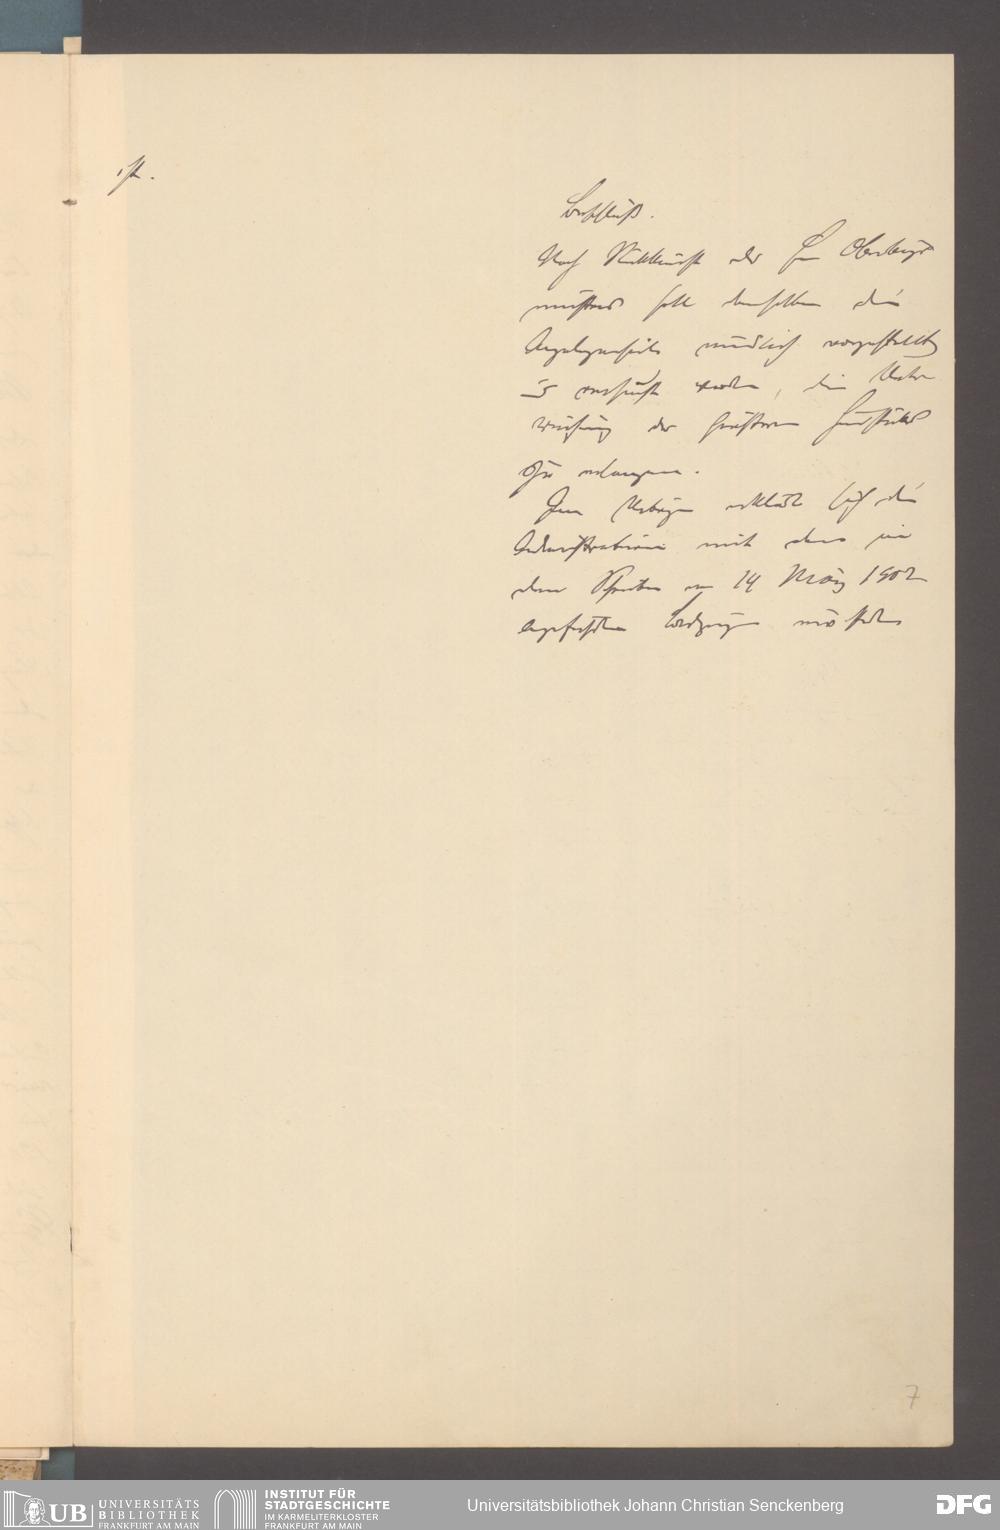 ist.
Beschluß.
Nach Rückkunft des Hrn Oberbürger-
meisters soll demselben die
Angelegenheit mündlich vorgestellt
u versucht werden, die Ueber-
weisung der
zu erlangen.
Im Uebrigen erklärt sich die
Administration mit dem in
dem Schreiben v 14 März 1902
angeführten
7
UB UNIVERSITÄTS
BIBLIOTHEK
FRANKFURT AM MAIN
INSTITUT FÜR
STADTGESCHICHTE
IM KARMELITERKLOSTER
FRANKFURT AM MAIN
Universitätsbibliothek Johann Christian Senckenberg
DFG